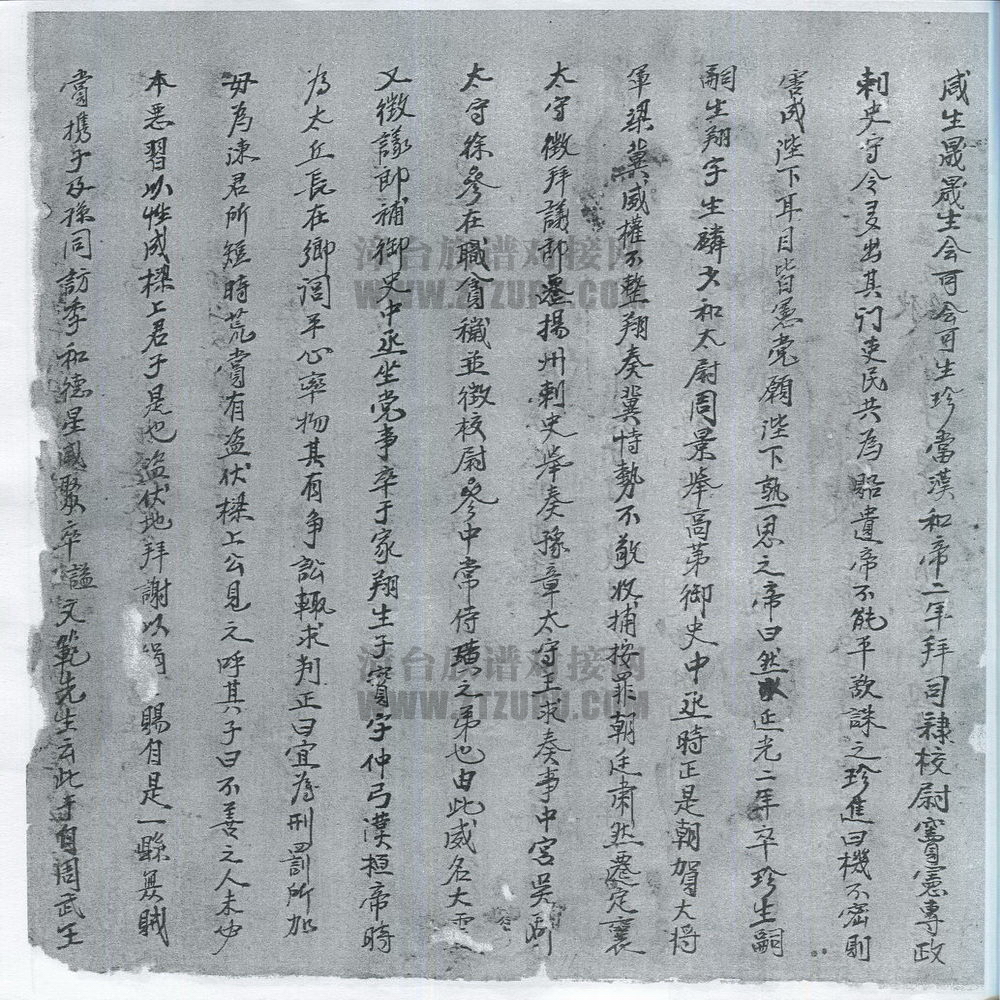 咸生晟晟生会可会可生珍當漢和帝二年拜司隸校尉竇憲專政
刺史守令多出其门吏民共為賂遺帝不能平欲誅之珍進曰機不密則
害成陛下耳目皆憲党願陛下熟思之帝曰然延光二年卒珍生嗣
嗣生翔字生麟少和太尉周景举高第御史中丞時正是朝賀大将
軍梁冀威權不整翔奏冀恃勢不敬收捕按罪朝廷肃然遷定襄
太守徵拜議郎遷揚州刺史举奏豫章太守王求奏事中宫吴郡
太守徐參在職貪穢並徵校尉參中常侍璜之弟也由此威名大震
又徵議郎補御史中丞坐党事卒于家翔生子實字仲弓漢桓帝時
為太丘長在鄉闾平心率物其有争訟輒求判正曰宜為刑罰所加
毋為陳君所短時荒嘗有盗伏樑上公見之呼其子曰不善之人未必
本惡習以性成樑上君子是也盗伏地拜謝以絹賜自是一縣無賊
嘗携子及孫同訪季和德星聚卒諡文範先生云此自周武王
漳台族谱对接网
WWW.ZTZUPU.COM
漳台族谱对接网
WWW.ZTZUPU.COM